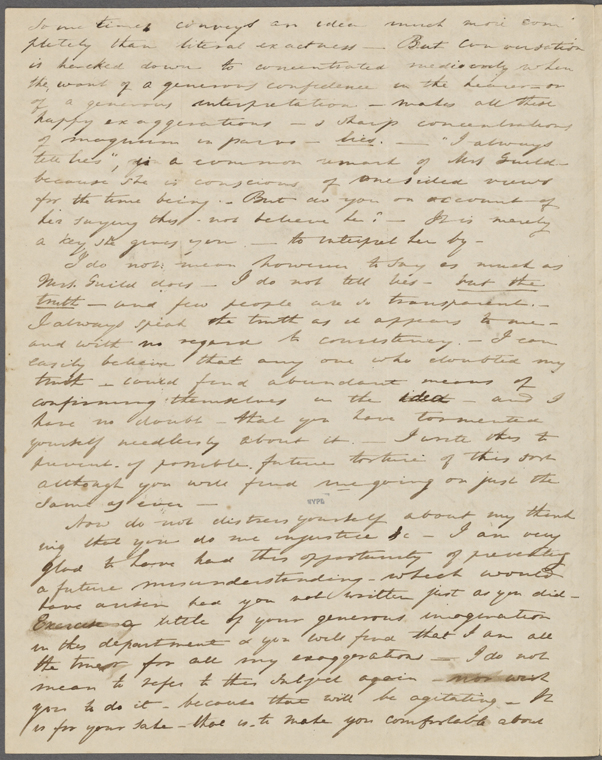 sometimes conveys an idea much more com
pletely than literal exactness — But conversation
is hacked down to concentrated mediocrity when
the want of a generous confidence in the hearer — or
of a generous interpretation — makes all these
happy exaggerations — & sharp concentrations
of magnum in parvo — lies. — "I always
tell lies", is a common remark of Mrs Guild —
because she is conscious of onesided views
for the time being. — But do you on account of
his saying this - not believe he? — It is merely
a key she gives you — to interpret her by —
I do not mean however to say as much as
Mrs. Guild does — I do not tell lies — but the
truth — and few people are so transparent. —
I always speak the truth as it appears to me —
and with no regard to consistency. — I can
easily believe that any one who doubted my
truth — could find abundant means of
confirming themselves in the idea — and I
have no doubt — that you have tormented
yourself needlessly about it. — I write this to
prevent, if possible, future torture of this sort
although you will find me going on just the
same as ever —
NYPL
Now do not distress yourself about my think
ing that you do me injustice &c — I am very
glad to have had this opportunity of preventing
a future misunderstanding — which would
have arisen had you not written just as you did —
Exercise a little of your generous imagination
in this department & you will find that I am all
the truer for all my exaggeration — I do not
mean to refer to this subject again — nor wish
you to do it — because that will be agitating — It
is for your sake — that is to make you comfortable about